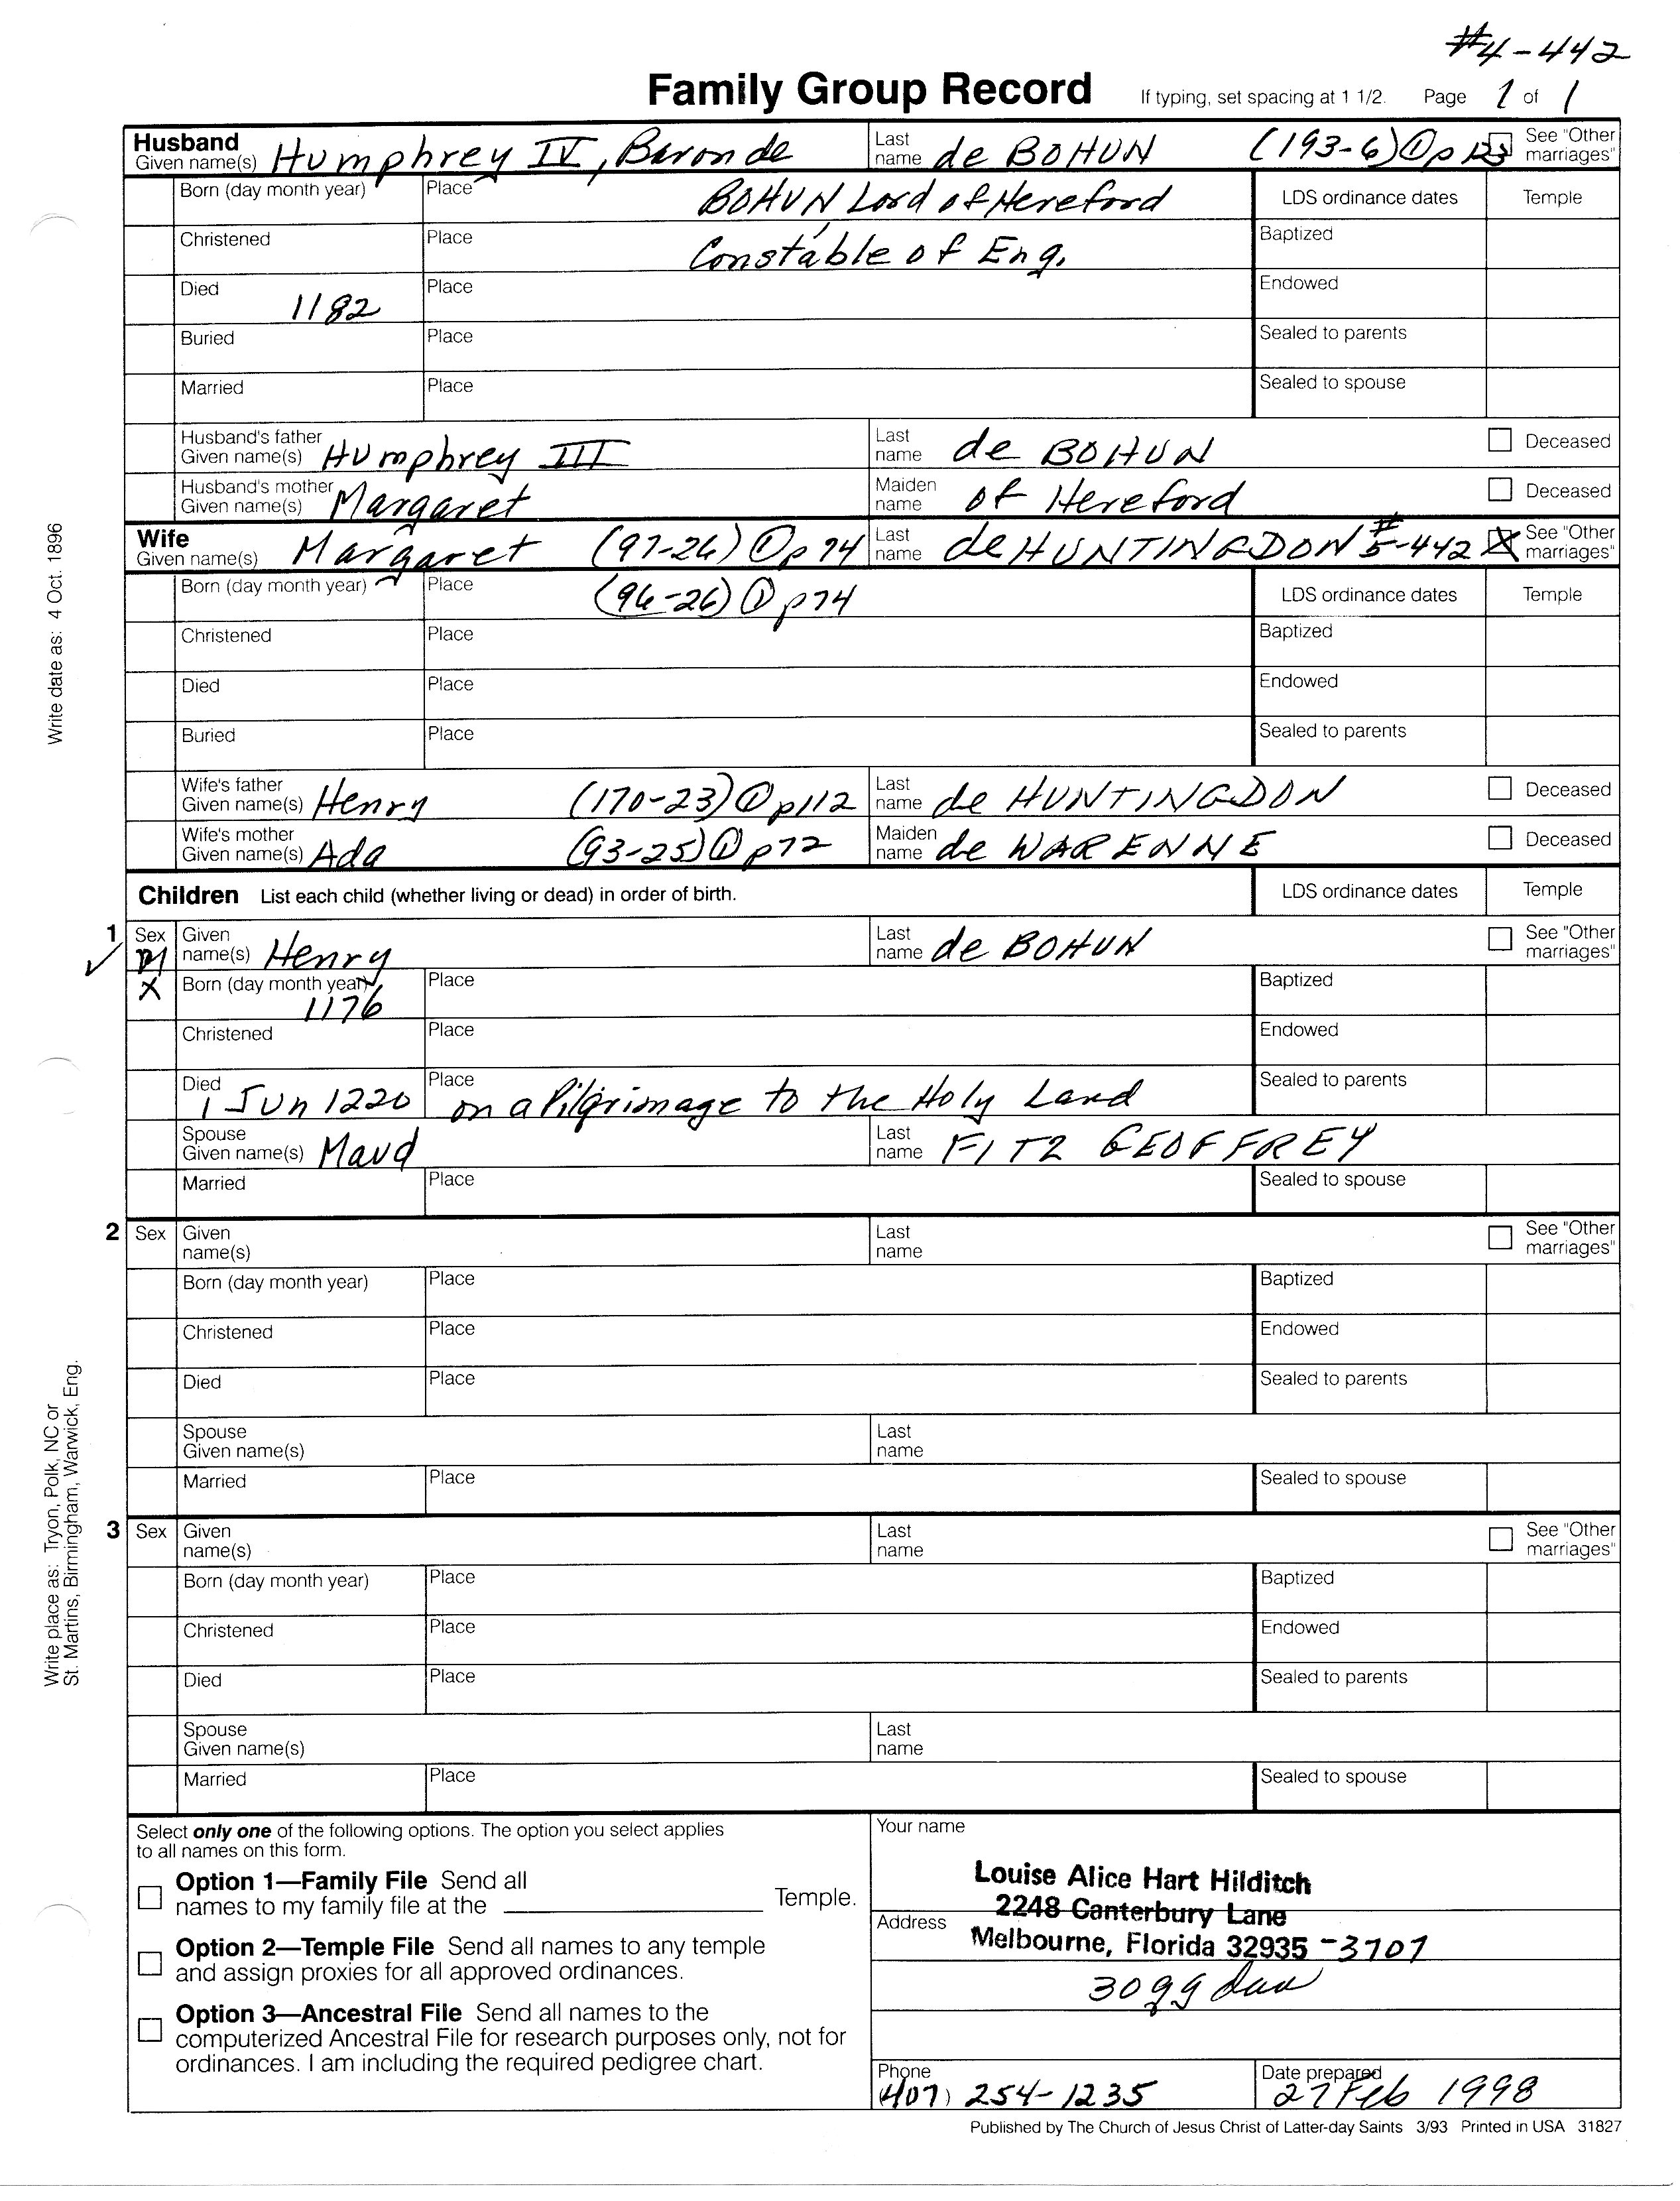 #4-442
Family Group Record If typing, set spacing at 1 1/2. Page 1 of 1
Husband
Given name(s) Humphrey IV, Baron de Last name de BOHUN (193-6) ① p See "Other marriages"
Born (day month year) Place BOHUN Lord of Hereford LDS ordinance dates Temple
Christened Place Constable of Eng. Baptized
Died 1182 Place Endowed
Buried Place Sealed to parents
Married Place Sealed to spouse
Husband's father Given name(s) Humphrey III Last name de BOHUN Deceased
Husband's mother Given name(s) Margaret Maiden name of Hereford Deceased
Wife
Given name(s) Margaret (97-26) ① p 74 Last name de HUNTINGDON #5-442 See "Other marriages"
Born (day month year) Place (96-26) ① p74 LDS ordinance dates Temple
Christened Place Baptized
Died Place Endowed
Buried Place Sealed to parents
Wife's father Given name(s) Henry (170-23) ① p112 Last name de HUNTINGDON Deceased
Wife's mother Given name(s) Ada (93-25) ① p72 Maiden name de WARENNE Deceased
Children List each child (whether living or dead) in order of birth. LDS ordinance dates Temple
1 Sex M Given name(s) Henry Last name de BOHUN See "Other marriages"
X Born (day month year) 1176 Place Baptized
Christened Place Endowed
Died 1 Jun 1220 Place on a Pilgrimage to the Holy Land Sealed to parents
Spouse Given name(s) Maud Last name FITZ GEOFFREY
Married Place Sealed to spouse
2 Sex Given name(s) Last name See "Other marriages"
Born (day month year) Place Baptized
Christened Place Endowed
Died Place Sealed to parents
Spouse Given name(s) Last name
Married Place Sealed to spouse
3 Sex Given name(s) Last name See "Other marriages"
Born (day month year) Place Baptized
Christened Place Endowed
Died Place Sealed to parents
Spouse Given name(s) Last name
Married Place Sealed to spouse
Select only one of the following options. The option you select applies
to all names on this form.
Option 1—Family File Send all
names to my family file at the Temple.
Option 2—Temple File Send all names to any temple
and assign proxies for all approved ordinances.
Option 3—Ancestral File Send all names to the
computerized Ancestral File for research purposes only, not for
ordinances. I am including the required pedigree chart.
Your name
Louise Alice Hart Hilditch
Address 2248 Canterbury Lane
Melbourne, Florida 32935 -3707
30 gg dau
Phone (407) 254-1235 Date prepared 27 Feb 1998
Published by The Church of Jesus Christ of Latter-day Saints 3/93 Printed in USA 31827
Write date as: 4 Oct. 1896
Write place as: Tryon, Polk, NC or
St. Martins, Birmingham, Warwick, Eng.